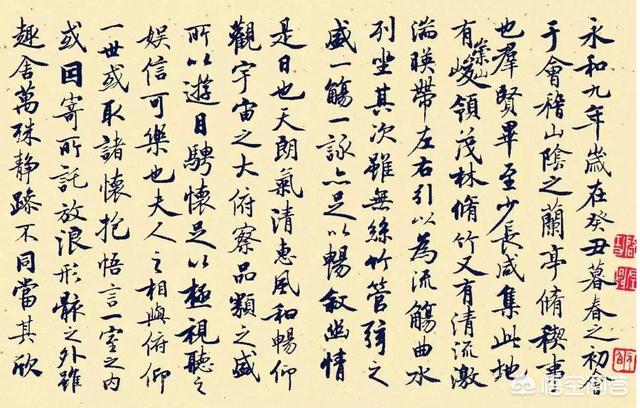 永和九年歲在癸丑暮春之初會
于會稽山陰之蘭亭脩稧事
也羣賢畢至少長咸集此地
有崇山峻領茂林脩竹又有清流激
湍暎帶左右引以為流觴曲水
列坐其次雖無絲竹管弦之
盛一觴一詠亦足以暢敘幽情
是日也天朗氣清惠風和暢仰
觀宇宙之大俯察品類之盛
所以遊目騁懷足以極視聽之
娛信可樂也夫人之相與俯仰
一世或取諸懷抱悟言一室之內
或因寄所託放浪形骸之外雖
趣舍萬殊静躁不同當其欣
悟空问答